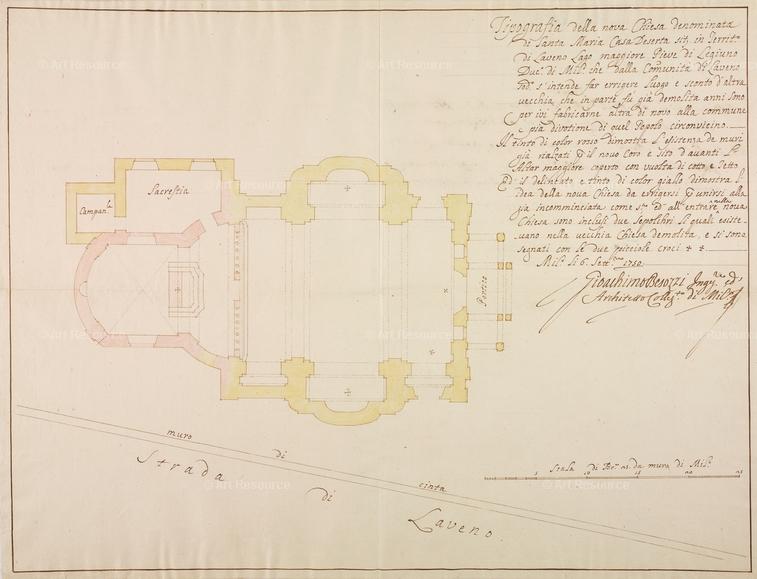 Tipografia della nova Chiesa denominata
di Santa Maria Casa Deserta sit. in Territ.o
di Laveno Lago maggiore Pieve di Legiuno
Duc.o di Mil.o che dalla Comunità di Laveno
s'intende far errigere luogo e sconto d'altra
vecchia, che in parte fù già demolita anni sono
per ivi fabricarne altra di novo alla commune
pia divotione di quel Popolo circonvicino.
Il tinto di color rosso dimostra l'esistenza de muri
già rialzati il novo Coro e sito d'avanti l'
Altar maggiore coperto con vuolta di cotto, e Tetto
Ed il delineato e tinto di color giallo dimostra l'
idea della nova Chiesa da errigersi unirsi alla
già incomminciata come s.a ed all'entrare nella nova
Chiesa sono inclusi due Sepolchri li quali esiste-
vano nella vecchia Chiesa demolita, e si sono
segnati con le due picciole croci + +
Mil.o li 6. Sett.bre 1750.
Gioachimo Besozzi Ing.re ed
Architetto Colleg.to di Mil.o
Sacrestia
Campan.le
Portico
muro di cinta
Strada di Laveno.
Scala di Br.a da muro di Mil.o
© Art Resource